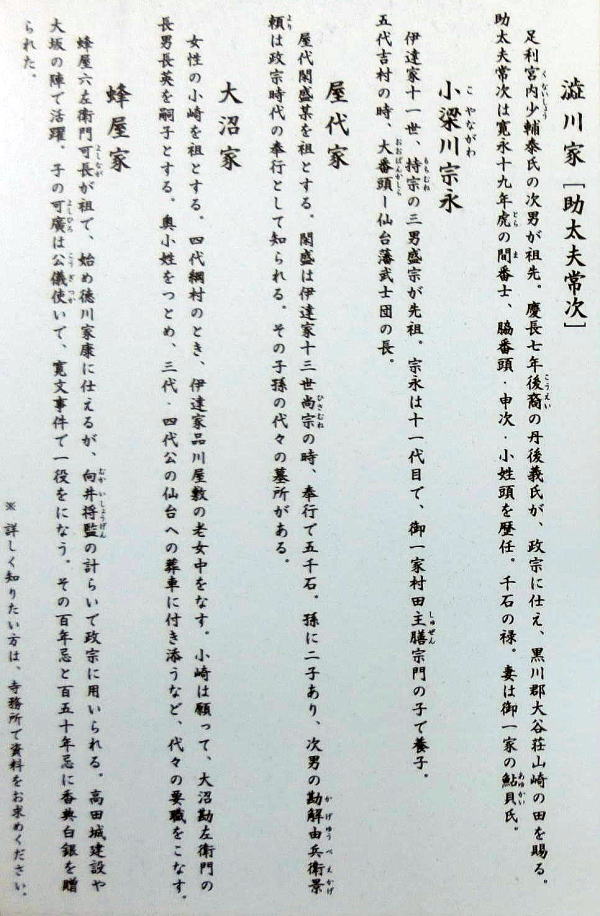 澁川家［助太夫常次］
足利宮内少輔泰氏の次男が祖先。慶長七年後裔の丹後義氏が、政宗に仕え、黒川郡大谷荘山崎の田を賜る。
助太夫常次は寛永十九年虎の間番士、脇番頭・申次・小姓頭を歴任。千石の禄。妻は御一家の鮎貝氏。
小梁川宗永
伊達家十一世、持宗の三男盛宗が先祖。宗永は十一代目で、御一家村田主膳宗門の子で養子。
五代吉村の時、大番頭ー仙台藩武士団の長。
屋代家
屋代閎盛某を祖とする。閎盛は伊達家十三世尚宗の時、奉行で五千石。孫に二子あり、次男の勘解由兵衛景
頼は政宗時代の奉行として知られる。その子孫の代々の墓所がある。
大沼家
女性の小崎を祖とする。四代綱村のとき、伊達家品川屋敷の老女中をなす。小崎は願って、大沼勘左衛門の
長男長英を嗣子とする。奥小姓をつとめ、三代・四代公の仙台への葬車に付き添うなど、代々の要職をこなす。
蜂屋家
蜂屋六左衛門可長が祖で、始め徳川家康に仕えるが、向井将監の計らいで政宗に用いられる。高田城建設や
大坂の陣で活躍。子の可廣は公儀使いで、寛文事件で一役をになう。その百年忌と百五十年忌に香典白銀を贈
られた。
※ 詳しく知りたい方は、寺務所で資料をお求めください。